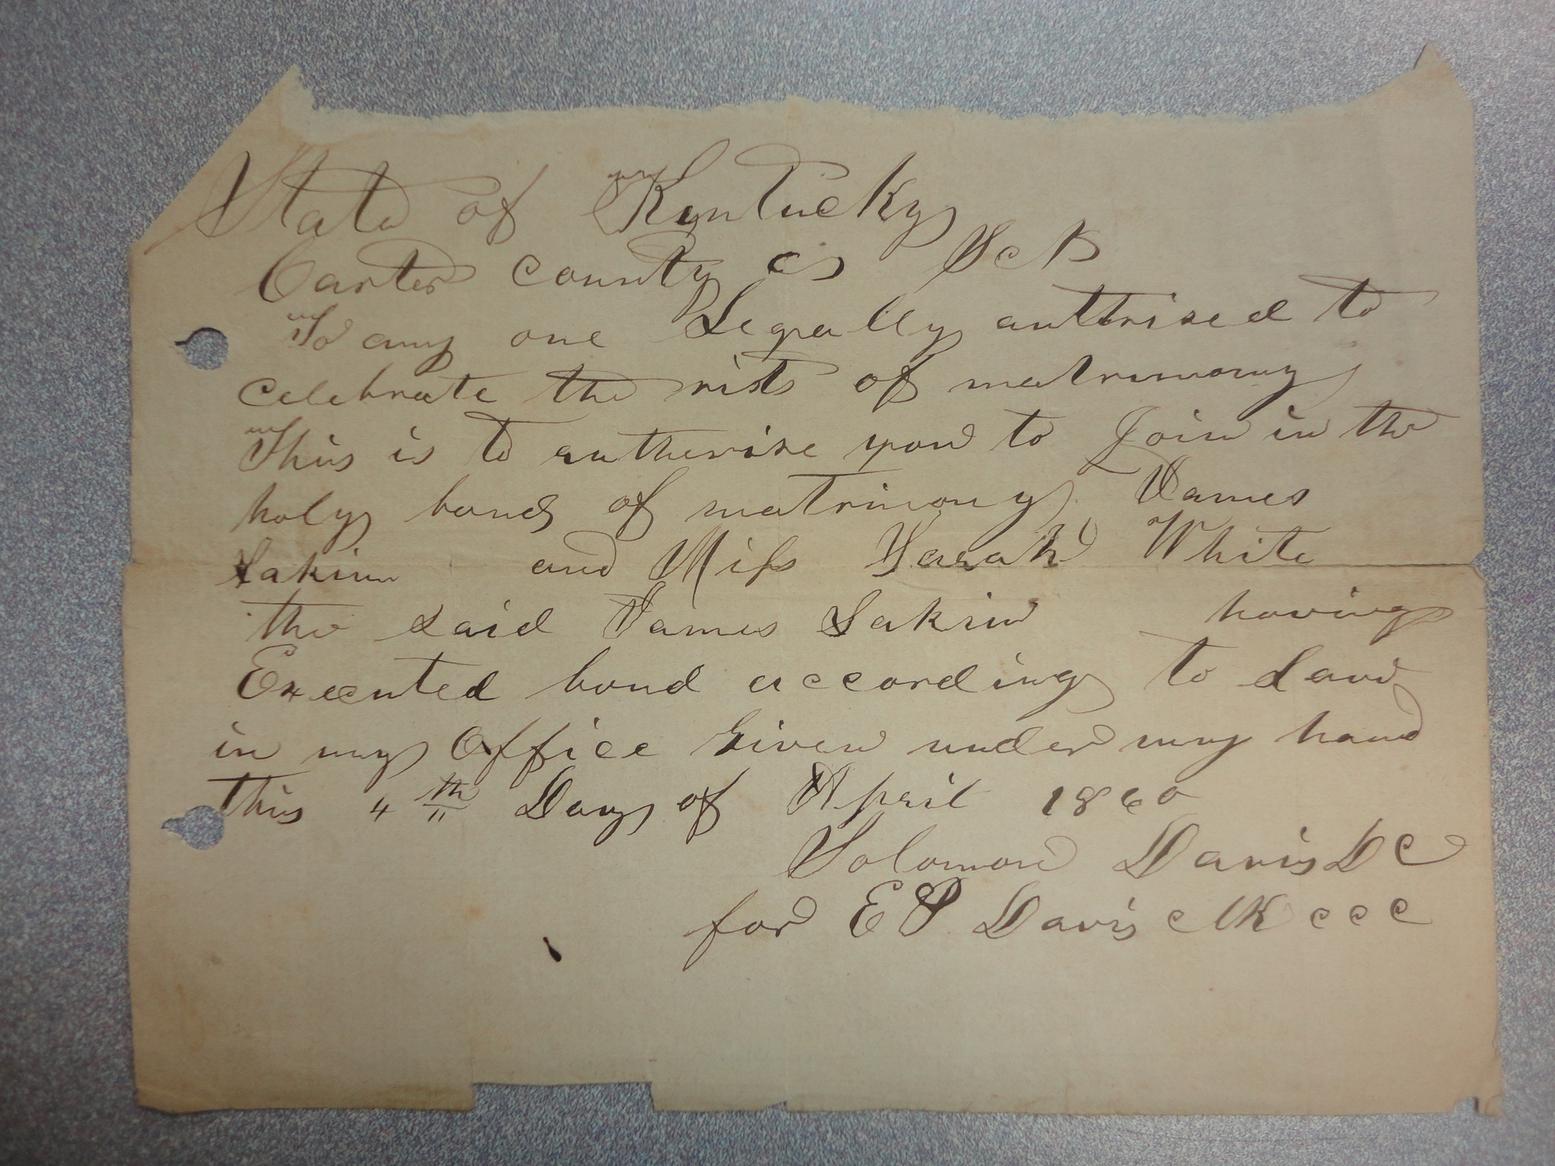 State of Kentucky
Carter county Sct
To any one Legally authrised to
celebrate the rits of matrimony
This is to autherise you to Join in the
holy bands of matrimony James
Lakin and Miss Sarah White
the said James Lakin having
Executed bond according to Law
in my Office Given under my hand
this 4th Day of April 1860
Solomon Davis D C
for E P Davis clk c c c